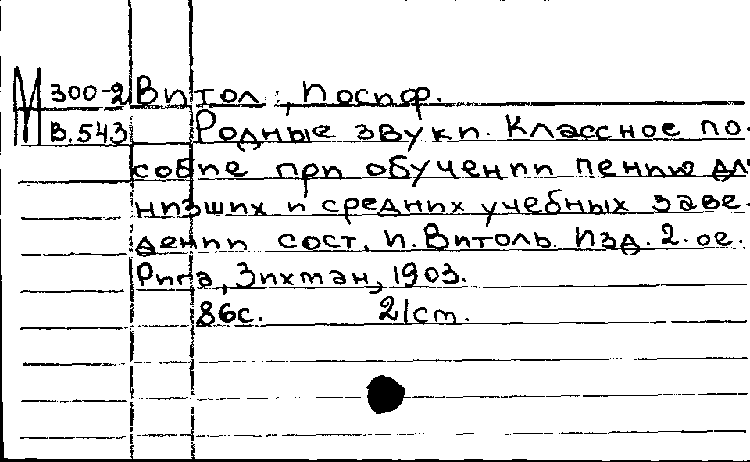 М 300-2 Витол , Иосиф.
В.543 Родные звуки. Классное по-
собие при обучении пению для
низших и средних учебных заве-
дении сост. И. Витоль. Изд. 2-ое.
Рига, Зихман, 1903.
86с. 21cm.